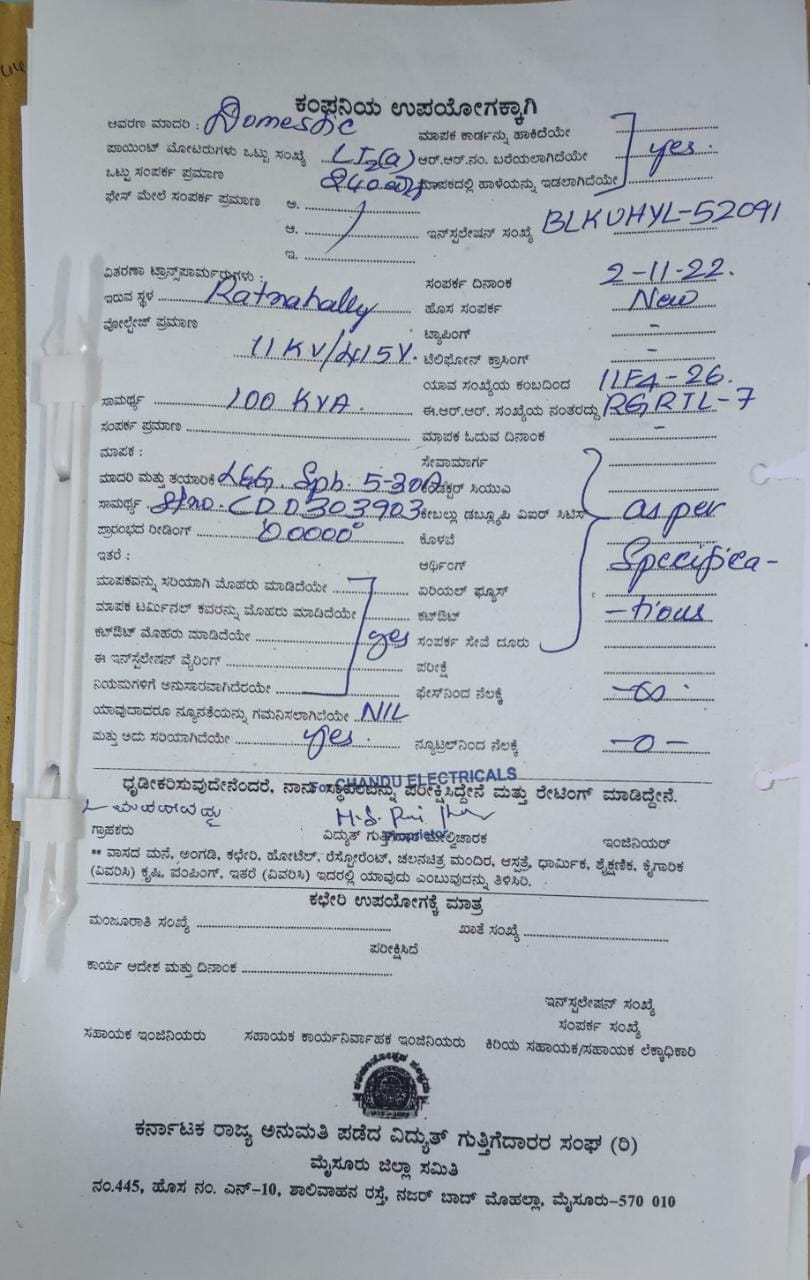 ಕಂಪನಿಯ ಉಪಯೋಗಕ್ಕಾಗಿ
ಆವರಣ ಮಾದರಿ : Domestic
ಮಾಪಕ ಕಾರ್ಡನ್ನು ಹಾಕಿದೆಯೇ
ಪಾಯಿಂಟ್ ಮೋಟರುಗಳು ಒಟ್ಟು ಸಂಖ್ಯೆ LT2(a) ಆರ್.ಆರ್.ನಂ. ಬರೆಯಲಾಗಿದೆಯೇ yes.
ಒಟ್ಟು ಸಂಪರ್ಕ ಪ್ರಮಾಣ ಮಾಪಕದಲ್ಲಿ ಹಾಳೆಯನ್ನು ಇಡಲಾಗಿದೆಯೇ
ಫೇಸ್ ಮೇಲೆ ಸಂಪರ್ಕ ಪ್ರಮಾಣ ಅ.
ಆ. ಇನ್‌ಸ್ಟಲೇಷನ್ ಸಂಖ್ಯೆ BLKUHYL-52091
ಇ.
ವಿತರಣಾ ಟ್ರಾನ್ಸ್‌ಪಾರ್ಮರುಗಳು : ಸಂಪರ್ಕ ದಿನಾಂಕ 2-11-22.
ಇರುವ ಸ್ಥಳ Ratnahally ಹೊಸ ಸಂಪರ್ಕ New
ವೋಲ್ಟೇಜ್ ಪ್ರಮಾಣ ಟ್ಯಾಪಿಂಗ್ -
11 KV/415V. ಟೆಲಿಫೋನ್ ಕ್ರಾಸಿಂಗ್ -
ಯಾವ ಸಂಖ್ಯೆಯ ಕಂಬದಿಂದ 11F4-26.
ಸಾಮರ್ಥ್ಯ 100 KVA. ಈ.ಆರ್.ಆರ್. ಸಂಖ್ಯೆಯ ನಂತರದ್ದು RGRTL-7
ಸಂಪರ್ಕ ಪ್ರಮಾಣ ಮಾಪಕ ಓದುವ ದಿನಾಂಕ -
ಮಾಪಕ : ಸೇವಾಮಾರ್ಗ
ಮಾದರಿ ಮತ್ತು ತಯಾರಿಕೆ L&G. Sph. 5-30A ಕಂಡಕ್ಟರ್ ಸಿಯುಎ
ಸಾಮರ್ಥ್ಯ Sl no. CDD303903 ಕೇಬಲ್ಲು ಡಬ್ಲ್ಯೂಪಿ ಐಐರ್ ಸಿಟಿಸ್ as per
ಪ್ರಾರಂಭದ ರೀಡಿಂಗ್ 00000 ಕೊಳವೆ
ಇತರೆ : ಆರ್ಥಿಂಗ್ Specifica-
ಮಾಪಕವನ್ನು ಸರಿಯಾಗಿ ಮೊಹರು ಮಾಡಿದೆಯೇ ಏರಿಯಲ್ ಫ್ಯೂಸ್
ಮಾಪಕ ಟರ್ಮಿನಲ್ ಕವರನ್ನು ಮೊಹರು ಮಾಡಿದೆಯೇ ಕಟ್‌ಔಟ್ -tions
ಕಟ್‌ಔಟ್ ಮೊಹರು ಮಾಡಿದೆಯೇ yes ಸಂಪರ್ಕ ಸೇವೆ ದೂರು
ಈ ಇನ್‌ಸ್ಟಲೇಷನ್ ವೈರಿಂಗ್ ಪರೀಕ್ಷೆ
ನಿಯಮಗಳಿಗೆ ಅನುಸಾರವಾಗಿದೆಯೇ ಫೇಸ್‌ನಿಂದ ನೆಲಕ್ಕೆ -∞.
ಯಾವುದಾದರೂ ನ್ಯೂನತೆಯನ್ನು ಗಮನಿಸಲಾಗಿದೆಯೇ NIL
ಮತ್ತು ಅದು ಸರಿಯಾಗಿದೆಯೇ yes. ನ್ಯೂಟ್ರಲ್‌ನಿಂದ ನೆಲಕ್ಕೆ -0-
For CHANDU ELECTRICALS
ಧೃಡೀಕರಿಸುವುದೇನೆಂದರೆ, ನಾನು ಸ್ಥಳವನ್ನು ಪರೀಕ್ಷಿಸಿದ್ದೇನೆ ಮತ್ತು ರೇಟಿಂಗ್ ಮಾಡಿದ್ದೇನೆ.
ಗ್ರಾಹಕರು ವಿದ್ಯುತ್ ಗುತ್ತಿಗೆದಾರ ಮೇಲ್ವಿಚಾರಕ ಇಂಜಿನಿಯರ್
Proprietor
** ವಾಸದ ಮನೆ, ಅಂಗಡಿ, ಕಛೇರಿ, ಹೋಟೆಲ್, ರೆಸ್ಟೋರೆಂಟ್, ಚಲನಚಿತ್ರ ಮಂದಿರ, ಆಸ್ಪತ್ರೆ, ಧಾರ್ಮಿಕ, ಶೈಕ್ಷಣಿಕ, ಕೈಗಾರಿಕ
(ವಿವರಿಸಿ) ಕೃಷಿ, ಪಂಪಿಂಗ್, ಇತರೆ (ವಿವರಿಸಿ) ಇದರಲ್ಲಿ ಯಾವುದು ಎಂಬುವುದನ್ನು ತಿಳಿಸಿರಿ.
ಕಛೇರಿ ಉಪಯೋಗಕ್ಕೆ ಮಾತ್ರ
ಮಂಜೂರಾತಿ ಸಂಖ್ಯೆ ಖಾತೆ ಸಂಖ್ಯೆ
ಪರೀಕ್ಷಿಸಿದೆ
ಕಾರ್ಯ ಆದೇಶ ಮತ್ತು ದಿನಾಂಕ
ಇನ್‌ಸ್ಟಲೇಷನ್ ಸಂಖ್ಯೆ
ಸಂಪರ್ಕ ಸಂಖ್ಯೆ
ಸಹಾಯಕ ಇಂಜಿನಿಯರು ಸಹಾಯಕ ಕಾರ್ಯನಿರ್ವಾಹಕ ಇಂಜಿನಿಯರು ಕಿರಿಯ ಸಹಾಯಕ/ಸಹಾಯಕ ಲೆಕ್ಕಾಧಿಕಾರಿ
ಕರ್ನಾಟಕ ರಾಜ್ಯ ಅನುಮತಿ ಪಡೆದ ವಿದ್ಯುತ್ ಗುತ್ತಿಗೆದಾರರ ಸಂಘ (ರಿ)
ಮೈಸೂರು ಜಿಲ್ಲಾ ಸಮಿತಿ
ನಂ.445, ಹೊಸ ನಂ. ಎನ್-10, ಶಾಲಿವಾಹನ ರಸ್ತೆ, ನಜರ್ ಬಾದ್ ಮೊಹಲ್ಲಾ, ಮೈಸೂರು-570 010